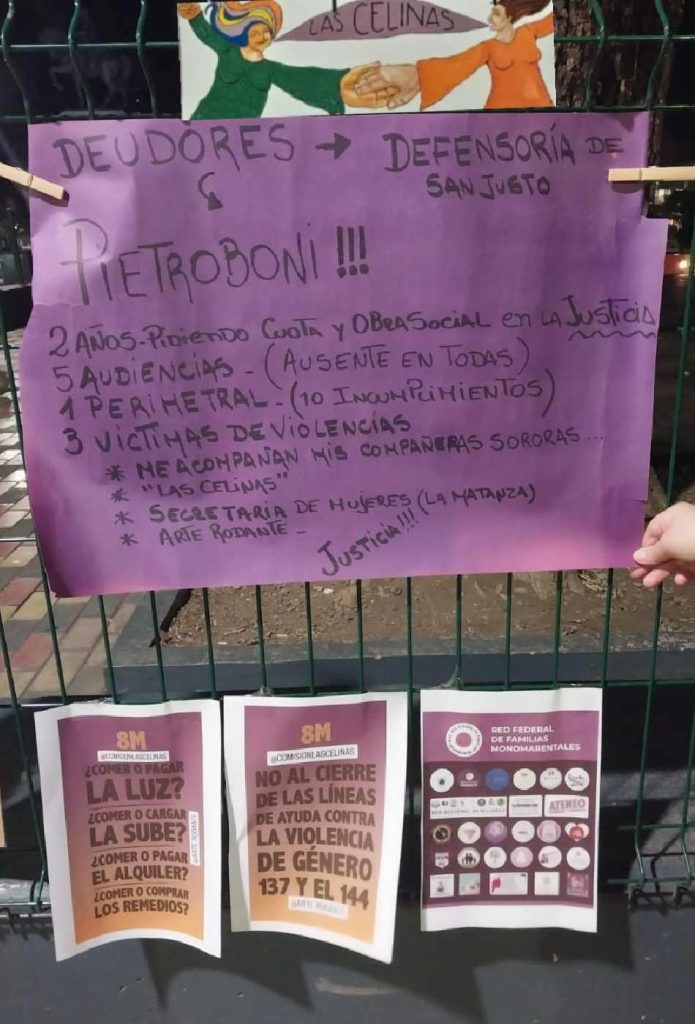 LAS CELINAS
DEUDORES → DEFENSORÍA DE
SAN JUSTO
PIETROBONI!!!
2 AÑOS-PidiENDO CUOTA y OBRA SOCIAL en LA JUSTICIA
5 AUDIENCIAS - (AUSENTE EN TODAS)
1 PERIMETRAL - (10 INCUMPLIMIENTOS)
3 VICTIMAS DE VIOLENCIAS
* ME ACOMPAÑAN MIS COMPAÑERAS SORORAS ...
* "LAS CELINAS"
* SECRETARIA DE MUJERES (LA MATANZA)
* ARTE RODANTE -
JUSTICIA!!!
8M
@COMISIONLASCELINAS
¿COMER O PAGAR
LA LUZ?
¿COMER O CARGAR
LA SUBE?
¿COMER O PAGAR
EL ALQUILER?
¿COMER O COMPRAR
LOS REMEDIOS?
@ARTE.RODANTE
8M
@COMISIONLASCELINAS
NO AL CIERRE
DE LAS LÍNEAS
DE AYUDA CONTRA
LA VIOLENCIA
DE GÉNERO
137 Y EL 144
RED FEDERAL
DE FAMILIAS
MONOMARENTALES
ATENEO